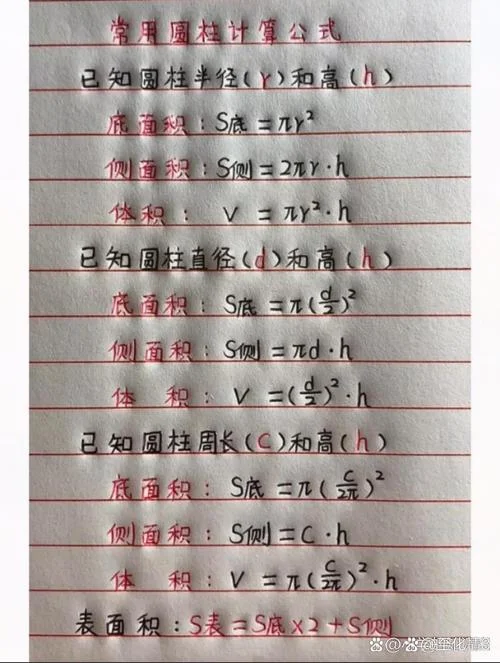 常用圆柱计算公式
已知圆柱半径(r)和高(h)
底面积:S底=πr²
侧面积:S侧=2πr·h
体积: V=πr²·h
已知圆柱直径(d)和高(h)
底面积:S底=π(d/2)²
侧面积:S侧=πd·h
体 积: V=(d/2)²·h
已知圆柱周长(C)和高(h)
底面积: S底=π(C/2π)²
侧面积: S侧=C·h
体 积: V=π(C/2π)²·h
表面积:S表=S底×2+S侧